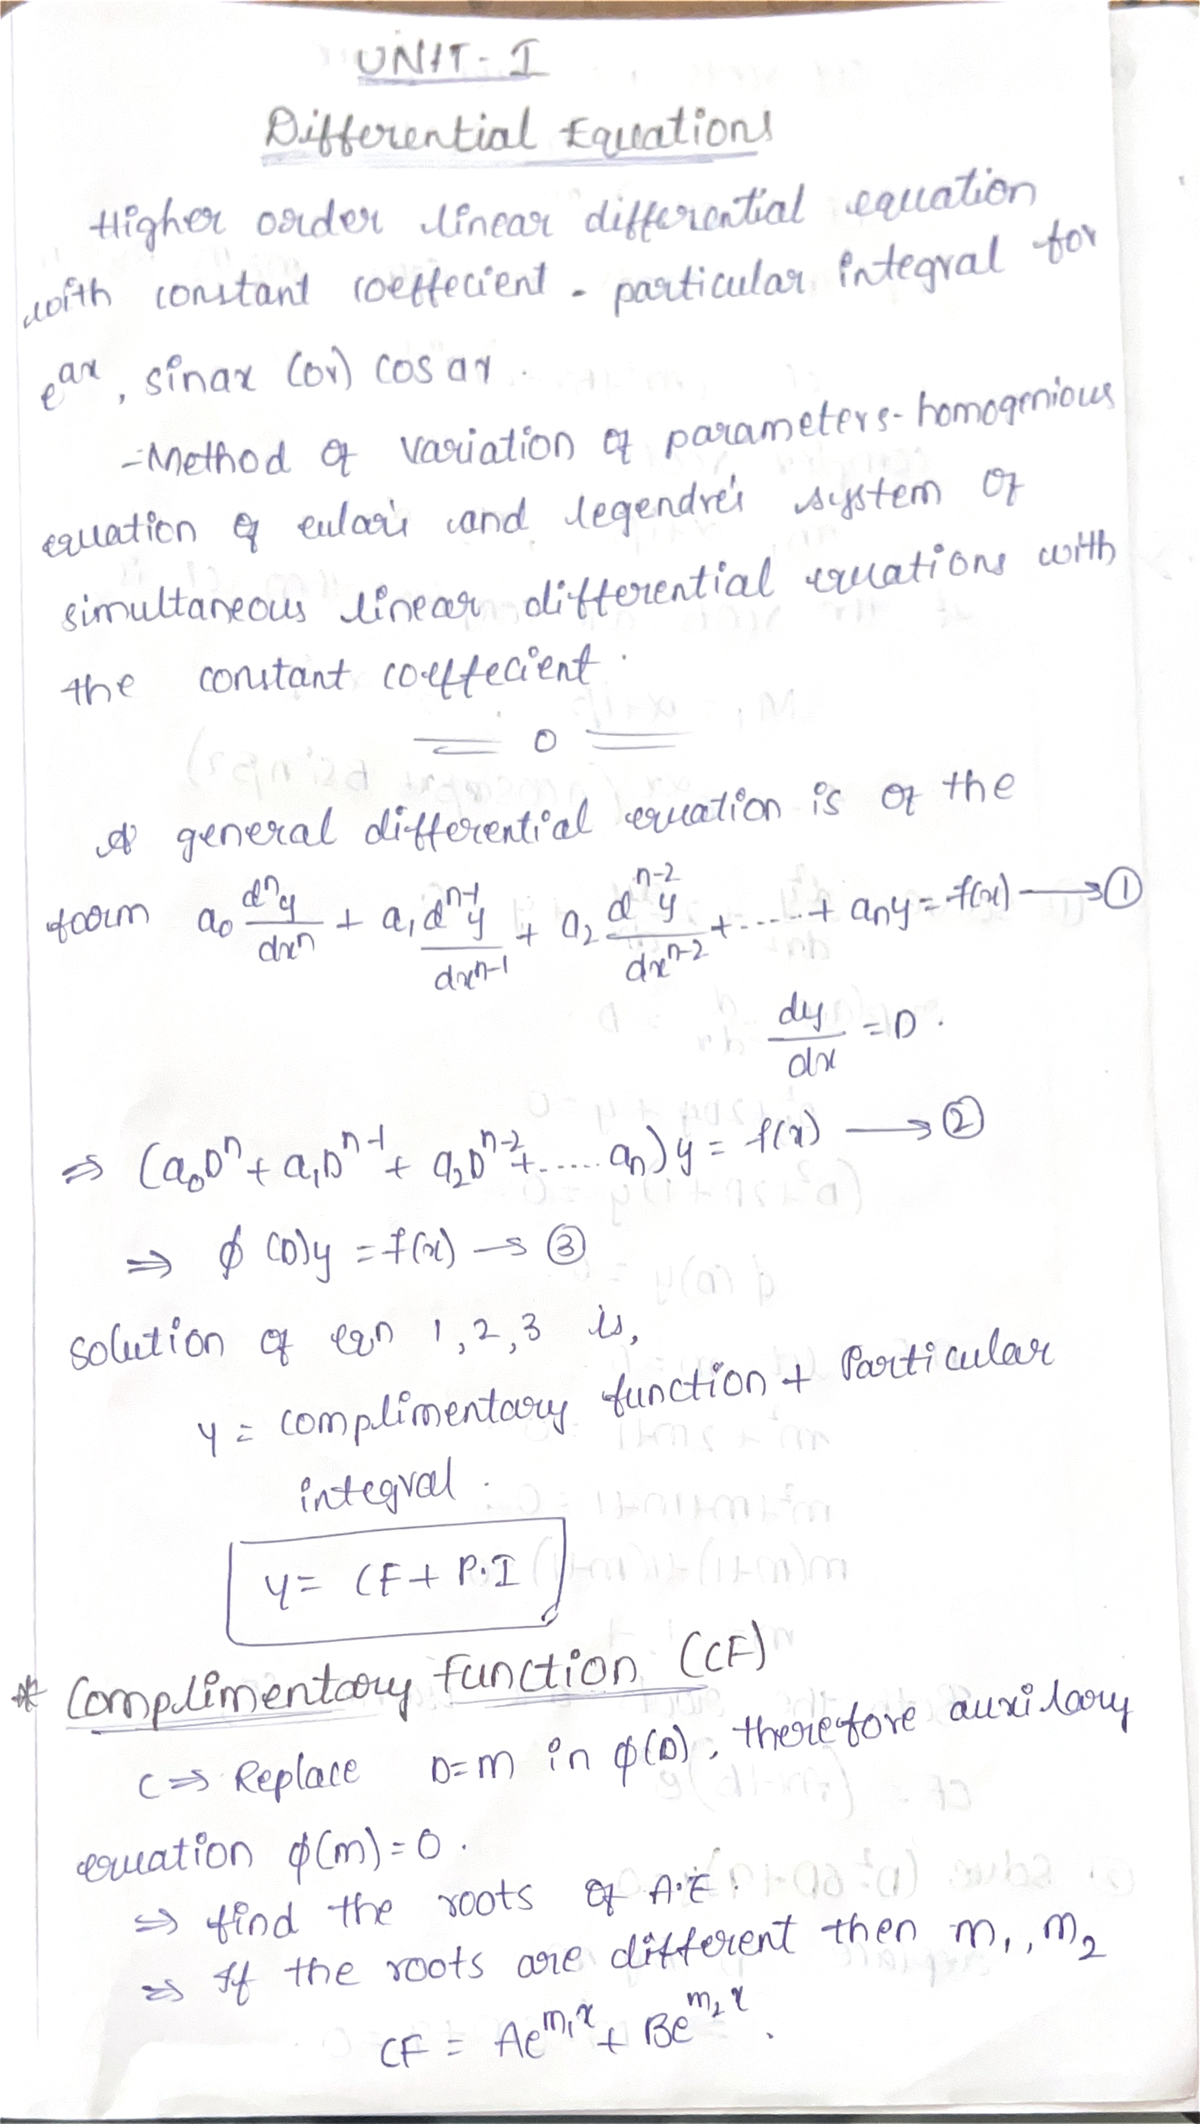 UNIT - I
Differential Equations
Higher order linear differential equation
with constant coeffecient - particular integral for
e^ax, sinax (or) cos ax.
- Method of variation of parameters - homogenious
equation of eular's and legendre's system of
simultaneous linear differential equations with
the constant coeffecient.
== 0 ==
A general differential equation is of the
form a₀ dⁿy/dxⁿ + a₁ dⁿ⁻¹y/dxⁿ⁻¹ + a₂ dⁿ⁻²y/dxⁿ⁻² + ..... + aₙy = f(x) → ①
dy/dx = D.
⇒ (a₀Dⁿ + a₁Dⁿ⁻¹ + a₂Dⁿ⁻² + ..... aₙ)y = f(x) → ②
⇒ ϕ(D)y = f(x) → ③
solution of eqn 1, 2, 3 is,
y = complimentary function + Particular
integral.
y = CF + P.I
* Complimentary function (CF)
C ⇒ Replace D=m in ϕ(D), therefore auxilary
equation ϕ(m) = 0.
⇒ find the roots of A.E.
⇒ If the roots are different then m₁, m₂
CF = Ae^m₁x + Be^m₂x.